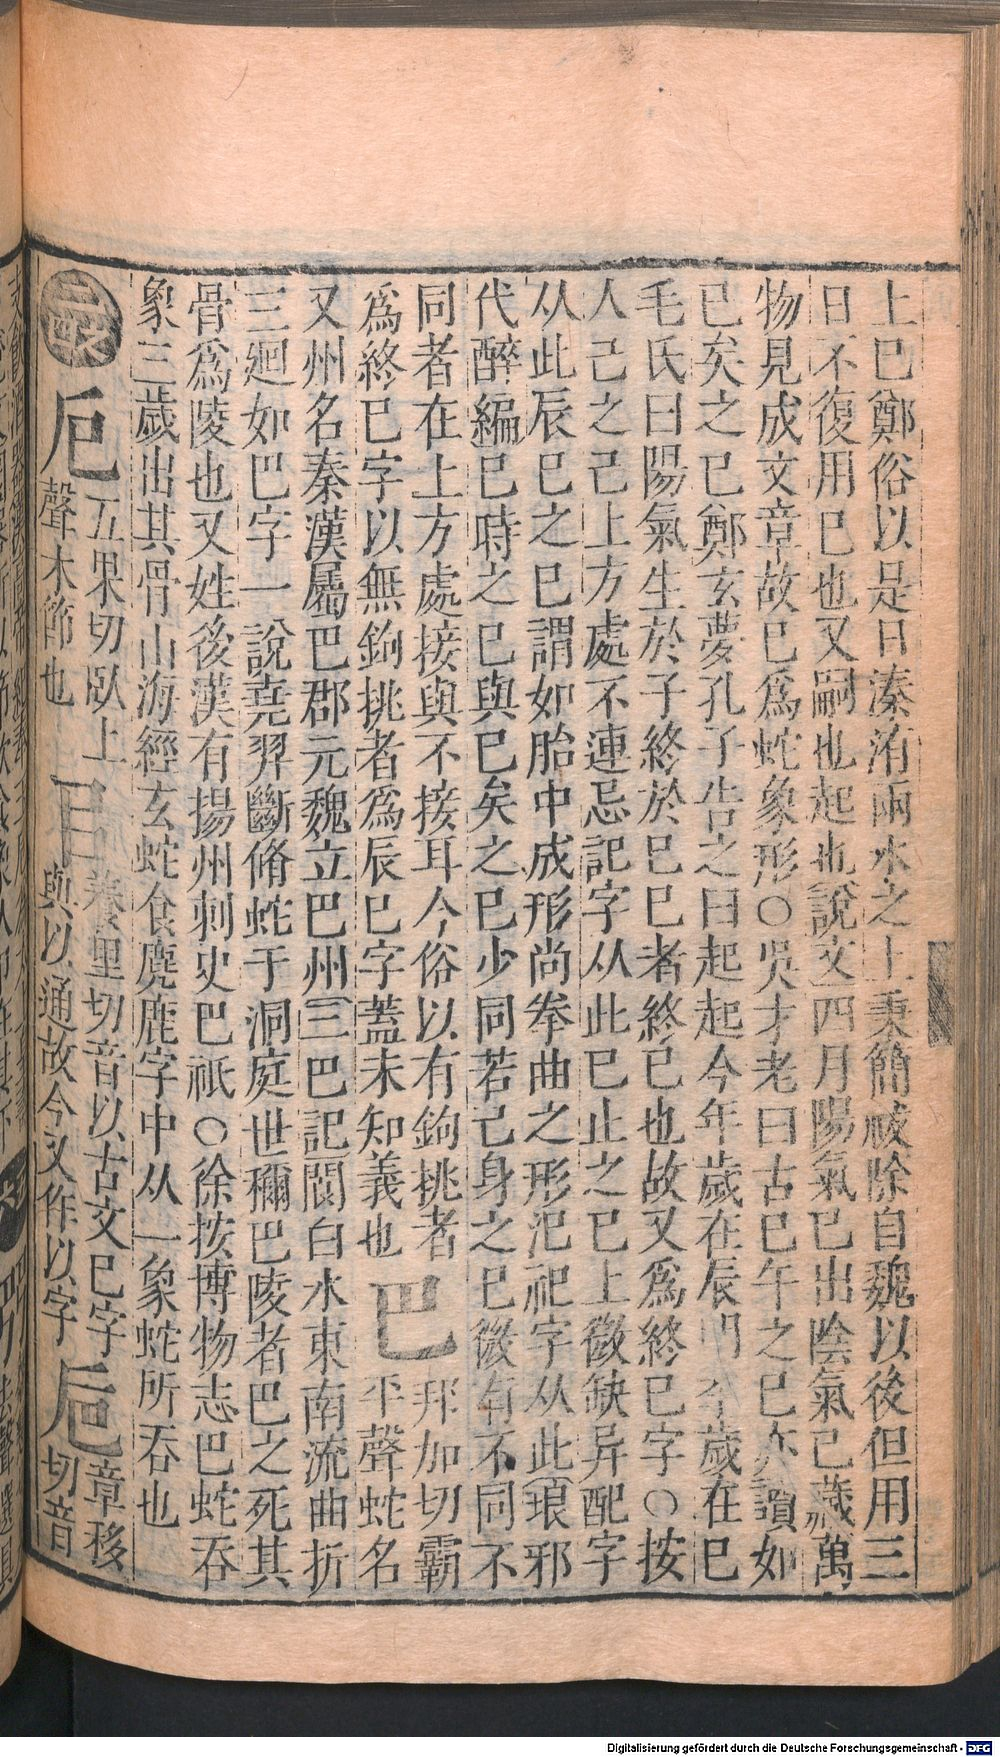 上巳鄭俗以是日溱洧兩水之上秉簡祓除自魏以後但用三
日不復用巳也又嗣也起也說文四月陽氣已出陰氣已藏萬
物見成文章故巳爲蛇象形○吳才老曰古巳午之巳亦讀如
已矣之已鄭玄夢孔子告之曰起起今年歲在辰明年歲在巳
毛氏曰陽氣生於子終於巳巳者終已也故又爲終已字○按
人己之己上方處不連忌記字从此已止之已上微缺异配字
从此辰巳之巳謂如胎中成形尚拳曲之形汜祀字从此琅邪
代醉編巳時之巳與已矣之已少同若己身之己微有不同不
同者在上方處接與不接耳今俗以有鉤挑者
爲終已字以無鉤挑者爲辰巳字蓋未知義也巴平聲蛇名
邦加切霸
又州名秦漢屬巴郡元魏立巴州三巴記閬白水東南流曲折
三廻如巴字一說堯羿斷脩蛇于洞庭世稱巴陵者巴之死其
骨爲陵也又姓後漢有揚州刺史巴祇○徐按博物志巴蛇吞
象三歲出其骨山海經玄蛇食麈鹿字中从一象蛇所吞也
三畫 戹 五果切臥上
聲木節也 㠯 養里切音以古文巳字
與以通故今又作以字 巵 章移
切音
Digitalisierung gefördert durch die Deutsche Forschungsgemeinschaft - DFG